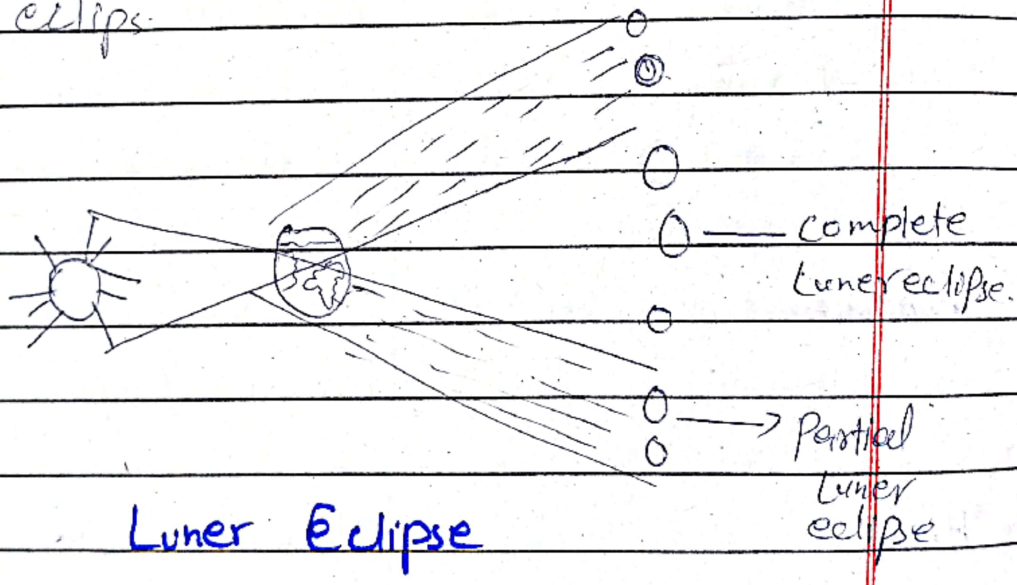 eclips.
complete
Luner eclipse.
Partial
Luner
eclipse
Luner Eclipse